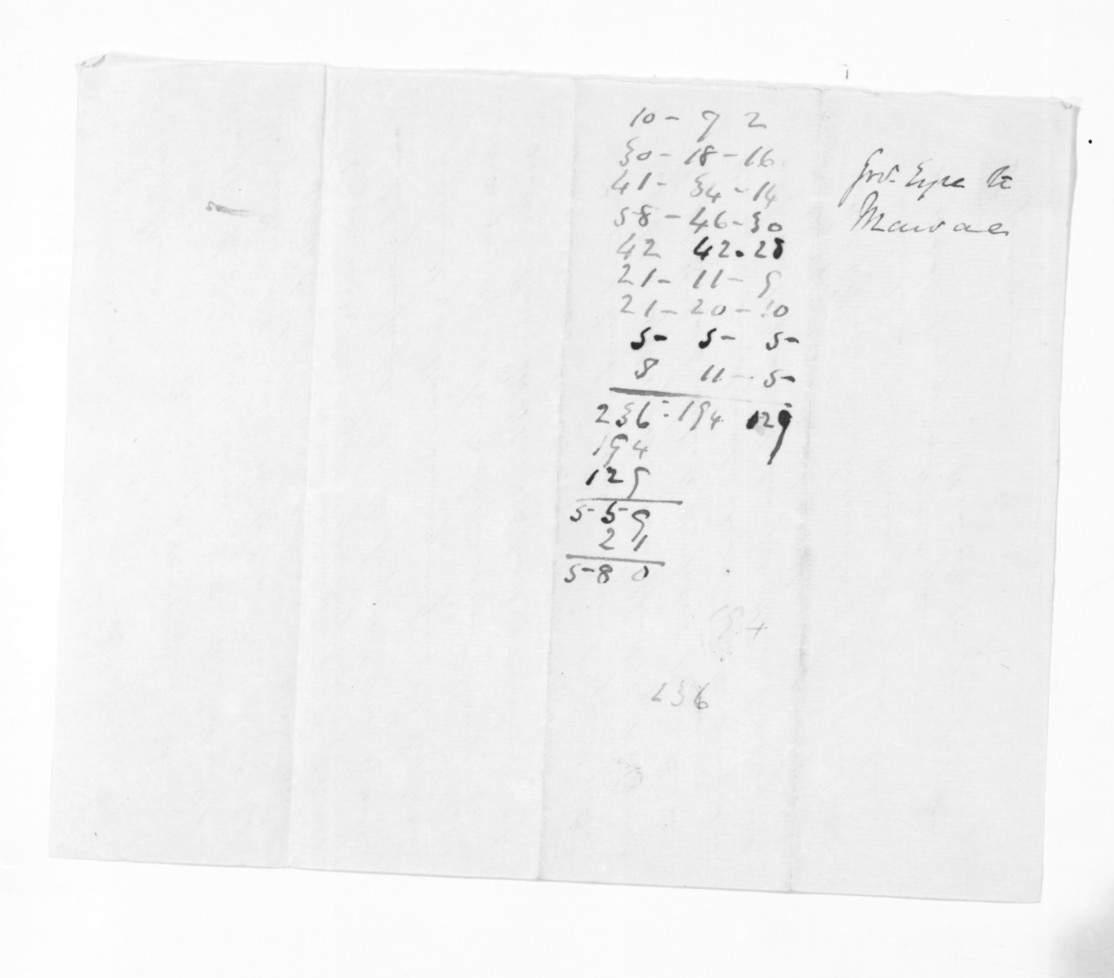 10 - 7 2
30 - 18 - 16
41 - 34 - 14
58 - 46 - 30
42 42.28
21 - 11 - 9
21 - 20 - 10
5 - 5 - 5 -
8 11 - 5 -
236 - 194 129
194
129
559
21
580
194
236
Gov. Eyre to